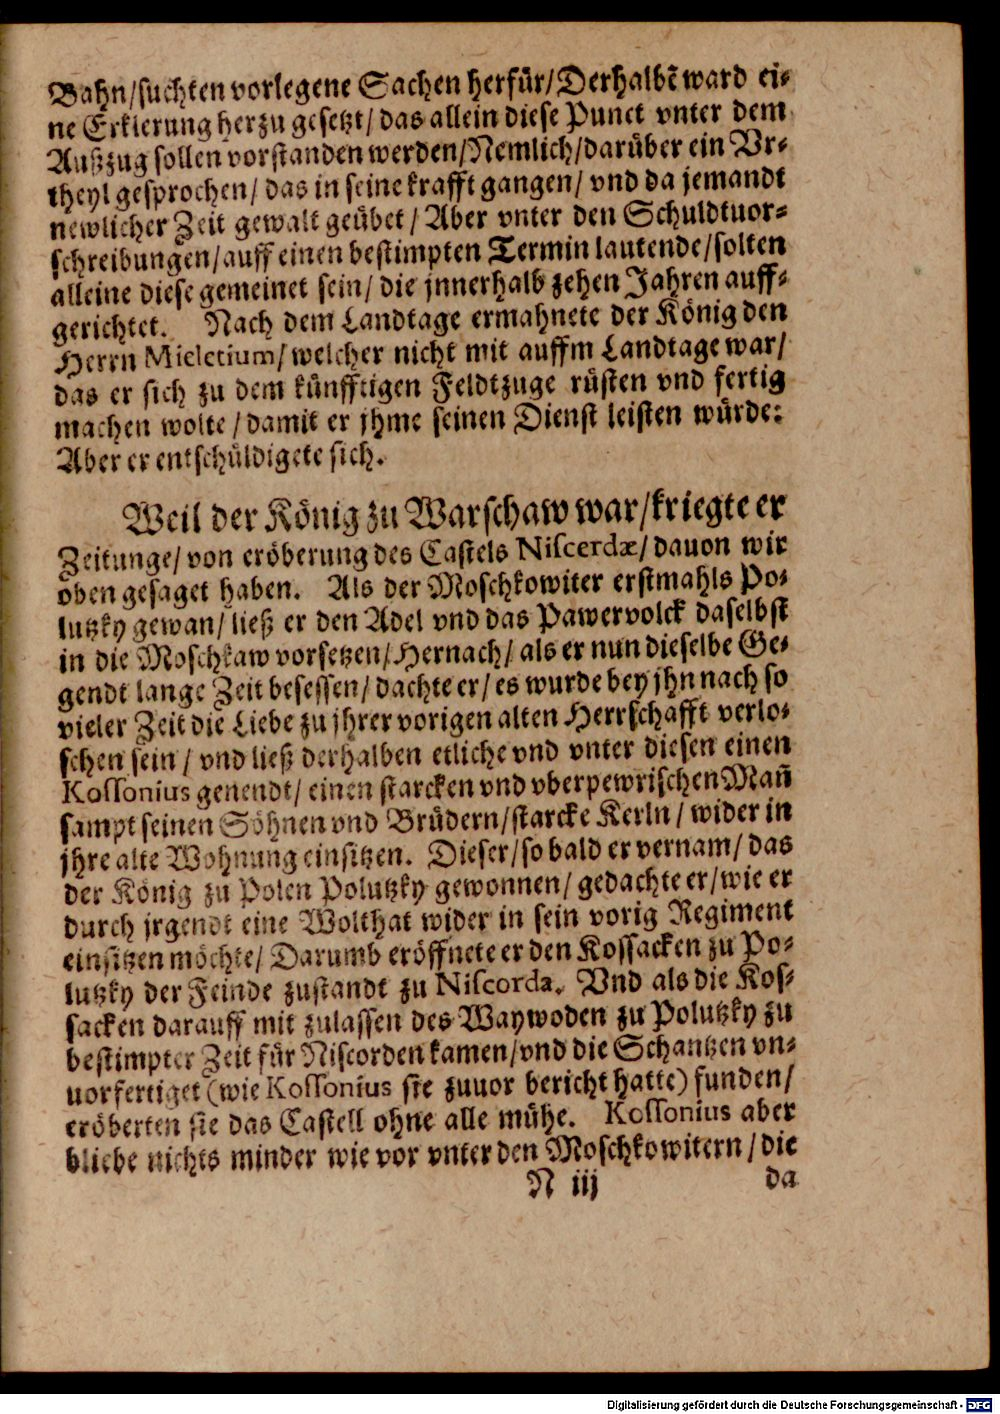 Bahn/suchten vorlegene Sachen herfür/Derhalbē ward ei-
ne Erklerung herzu gesetzt/ das allein diese Punct vnter dem
Außzug sollen vorstanden werden/Nemlich/darüber ein Vr-
theyl gesprochen/ das in seine krafft gangen/ vnd da jemandt
newlicher Zeit gewalt geübet/ Aber vnter den Schuldtuor-
schreibungen/auff einen bestimpten Termin lautende/solten
alleine diese gemeinet sein/ die jnnerhalb zehen Jahren auff-
gerichtet. Nach dem Landtage ermahnete der König den
Herrn Mieletium/welcher nicht mit auffm Landtage war/
das er sich zu dem künfftigen Feldtzuge rüsten vnd fertig
machen wolte/damit er jhme seinen Dienst leisten würde:
Aber er entschüldigete sich.
Weil der König zu Warschaw war/kriegte er
Zeitunge/von eröberung des Castels Niscerdæ/dauon wir
oben gesaget haben. Als der Moschkowiter erstmahls Po-
lutzky gewan/ließ er den Adel vnd das Pawervolck daselbst
in die Moschkaw vorsetzen/Hernach/als er nun dieselbe Ge-
gendt lange Zeit besessen/dachte er/es wurde bey jhn nach so
vieler Zeit die Liebe zu jhrer vorigen alten Herrschafft verlo-
schen sein/ vnd ließ derhalben etliche vnd vnter diesen einen
Kossonius genendt/ einen starcken vnd vberpewrischen Mañ
sampt seinen Söhnen vnd Brüdern/starcke Kerln/ wider in
jhre alte Wohnung einsitzen. Dieser/so bald er vernam/ das
der König zu Polen Polutzky gewonnen/ gedachte er/wie er
durch jrgendt eine Wolthat wider in sein vorig Regiment
einsitzen möchte/ Darumb eröffnete er den Kossacken zu Po-
lutzky der Feinde zustandt zu Niscorda. Vnd als die Kos-
sacken darauff mit zulassen des Waywoden zu Polutzky zu
bestimpter Zeit für Niscorden kamen/vnd die Schantzen vn-
uorfertiget (wie Kossonius sie zuuor bericht hatte) funden/
eröberten sie das Castell ohne alle mühe. Kossonius aber
bliebe nichts minder wie vor vnter den Moschkowitern/die
N iij da
Digitalisierung gefördert durch die Deutsche Forschungsgemeinschaft - DFG